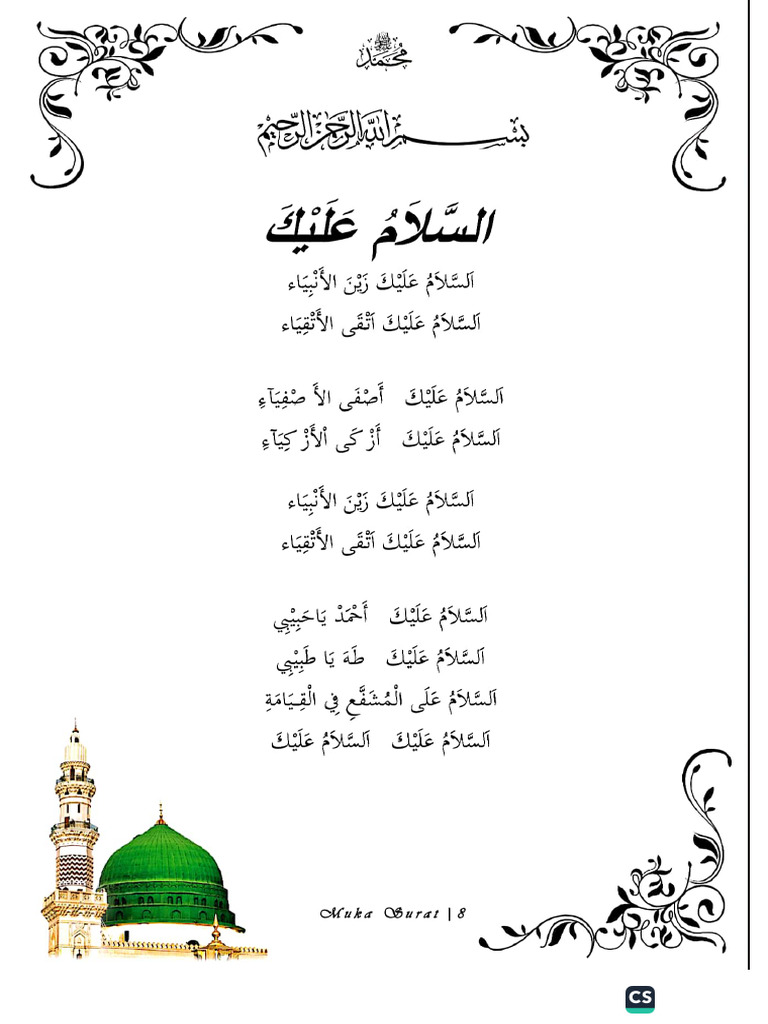 محمد ﷺ
بسم الله الرحمن الرحيم
السَّلاَمُ عَلَيْكَ
اَلسَّلاَمُ عَلَيْكَ زَيْنَ الأَنْبِيَاء
اَلسَّلاَمُ عَلَيْكَ اَتْقَى الأَتْقِيَاء
اَلسَّلاَمُ عَلَيْكَ أَصْفَى الأَ صْفِيَآءِ
اَلسَّلاَمُ عَلَيْكَ أَزْ كَى اْلأَزْ كِيَآءِ
اَلسَّلاَمُ عَلَيْكَ زَيْنَ الأَنْبِيَاء
اَلسَّلاَمُ عَلَيْكَ اَتْقَى الأَتْقِيَاء
اَلسَّلاَمُ عَلَيْكَ أَحْمَدْ يَاحَبِيْبِي
اَلسَّلاَمُ عَلَيْكَ طَهَ يَا طَبِيْبِي
اَلسَّلاَمُ عَلَى الْمُشَفَّعِ فِي الْقِيَامَةِ
اَلسَّلاَمُ عَلَيْكَ اَلسَّلاَمُ عَلَيْكَ
Muka Surat | 8
CS